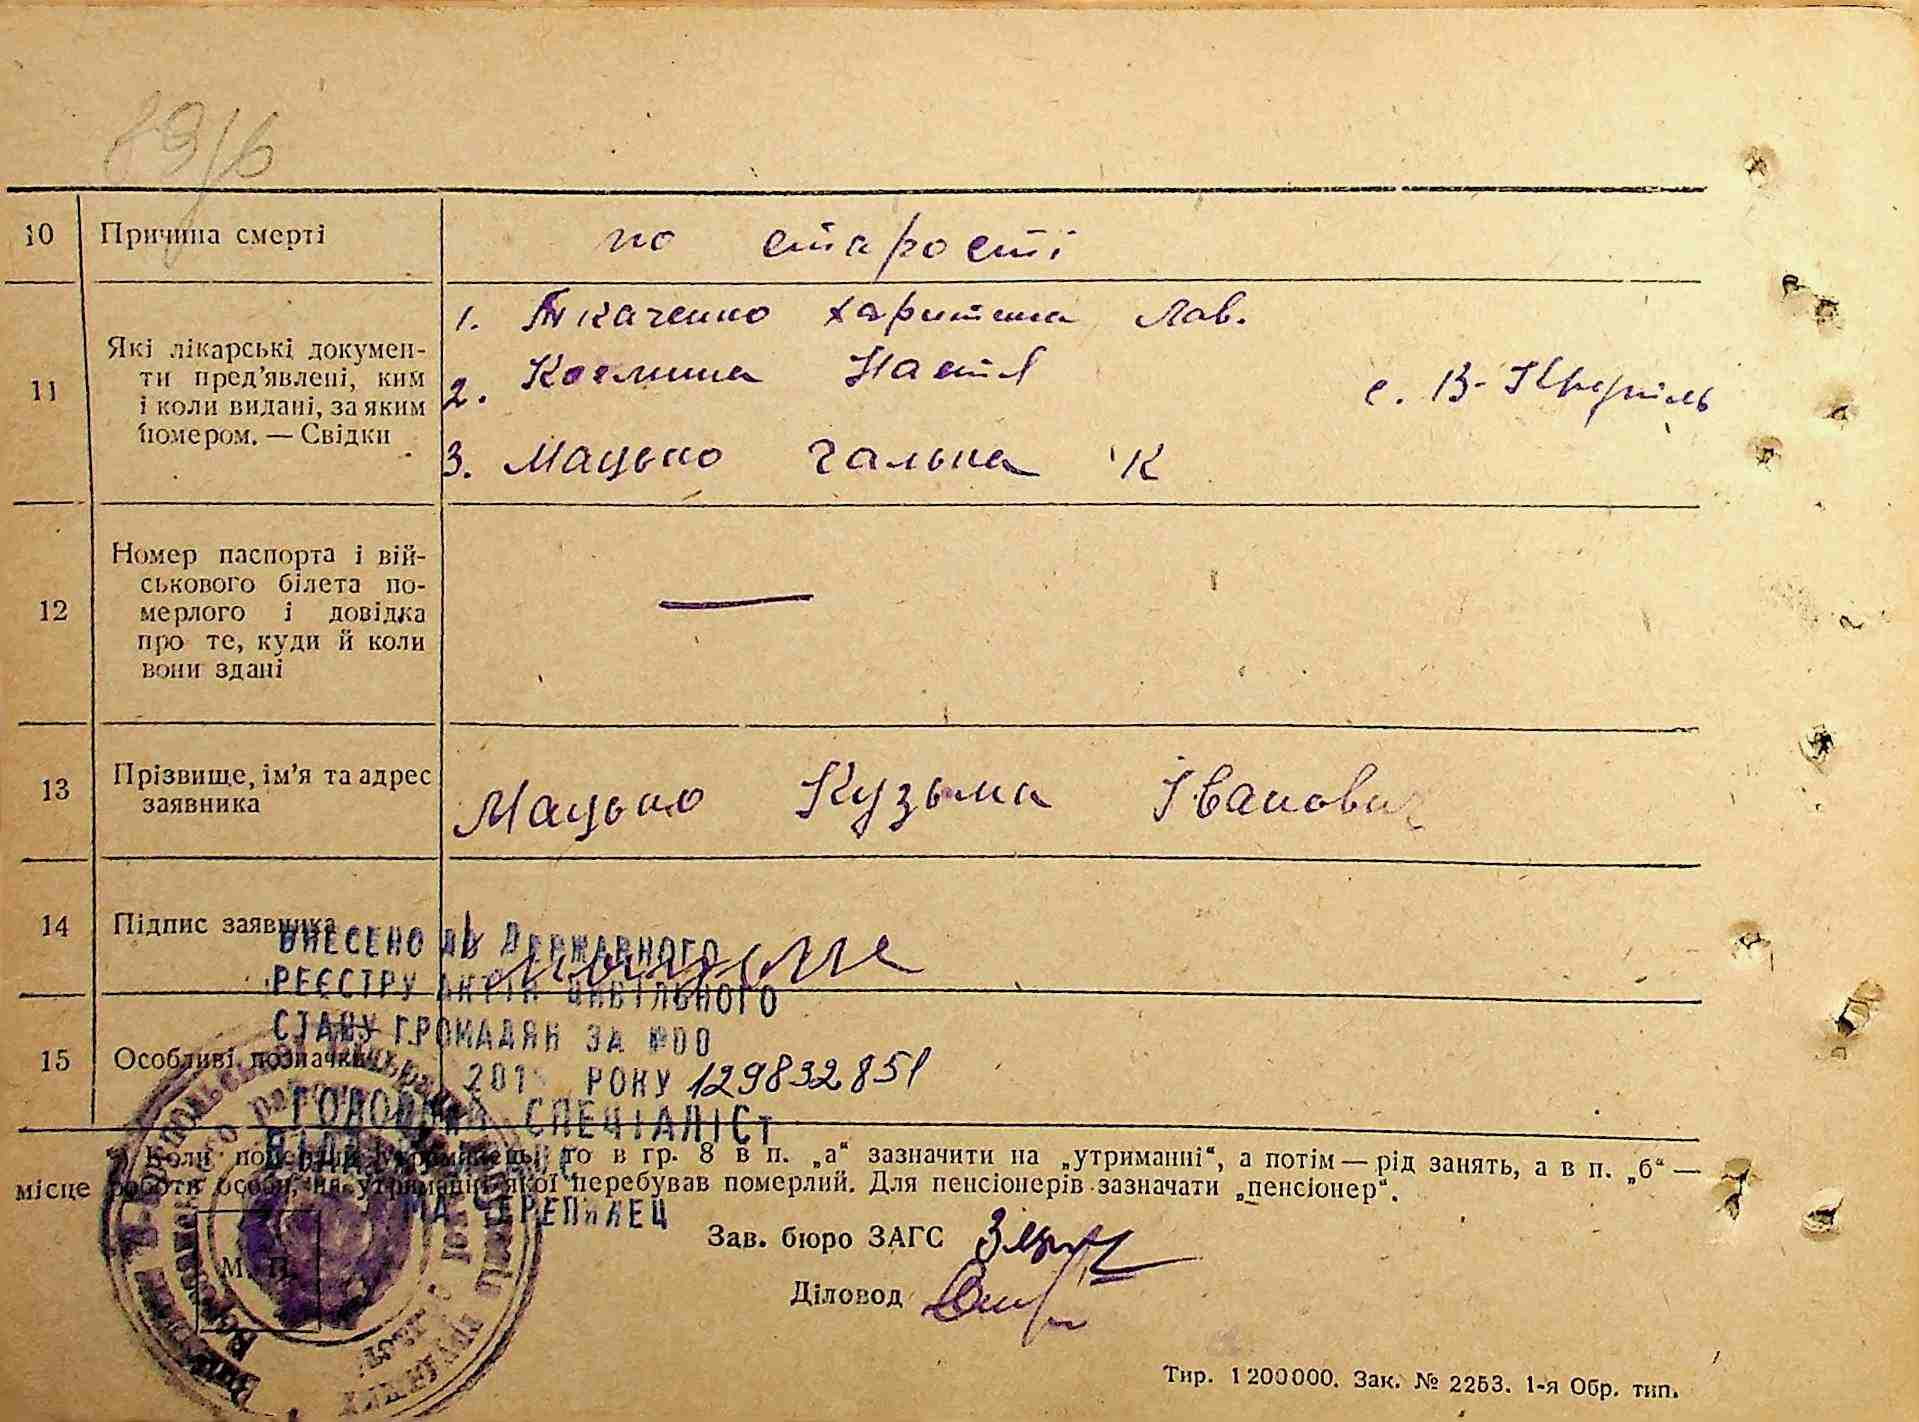 10 Причина смерті по старості
1. Ткаченко Харитина Лав.
11 Які лікарські докумен-
ти пред'явлені, ким
і коли видані, за яким
номером. — Свідки
2. Настя с. В-
3. Мацько Галька К
12 Номер паспорта і вій-
ськового білета по-
мерлого і довідка
про те, куди й коли
вони здані
—
13 Прізвище, ім'я та адрес
заявника
Мацько Кузьма Іванович
14 Підпис заявника
ВНЕСЕНО ДО ДЕРЖАВНОГО
РЕЄСТРУ АКТІВ ЦИВІЛЬНОГО
СТАНУ ГРОМАДЯН ЗА №00
15 Особливі позначки
201 РОКУ 129832851
ГОЛОВНИЙ СПЕЦІАЛІСТ
Коли то в гр. 8 в п. „а“ зазначити на „утриманні“, а потім — рід занять, а в п. „б“ —
місце роботи особи, на утриманні якої перебував померлий. Для пенсіонерів зазначати „пенсіонер“.
М. П.
Зав. бюро ЗАГС
Діловод
Тир. 1200000. Зак. № 2253. 1-я Обр. тип.